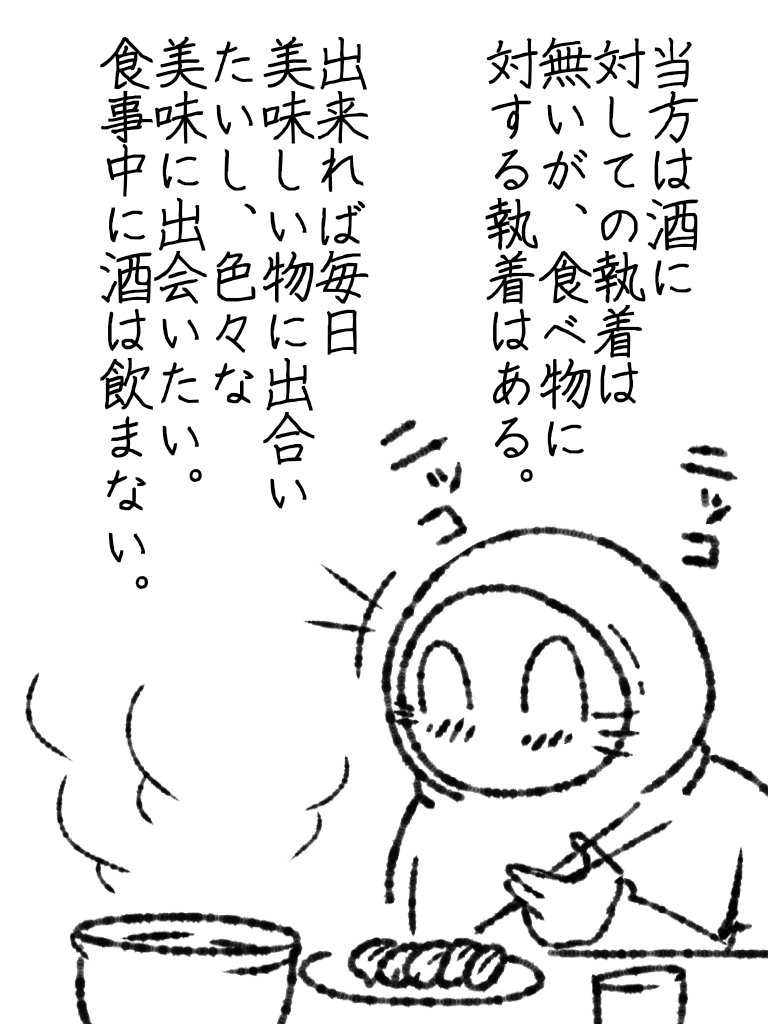 当方は酒に
対しての執着は
無いが、食べ物に
対する執着はある。
出来れば毎日
美味しい物に出合い
たいし、色々な
美味に出会いたい。
食事中に酒は飲まない。
ニッコ
ニッコ